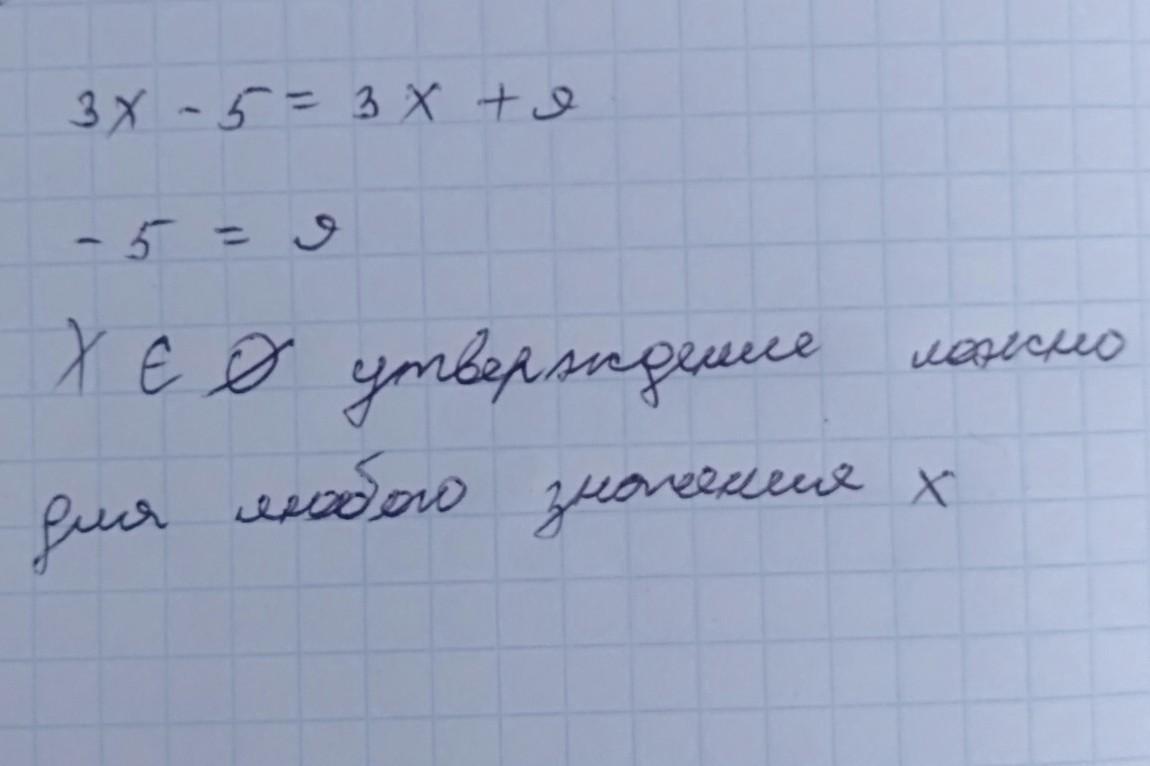 3x - 5 = 3x + 9
- 5 = 9
X ∈ ∅ утверждение ложно
для любого значения x